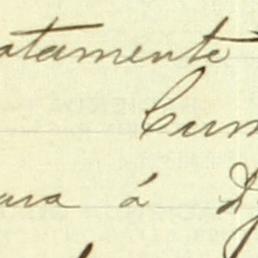 atamente
Cum
ara á